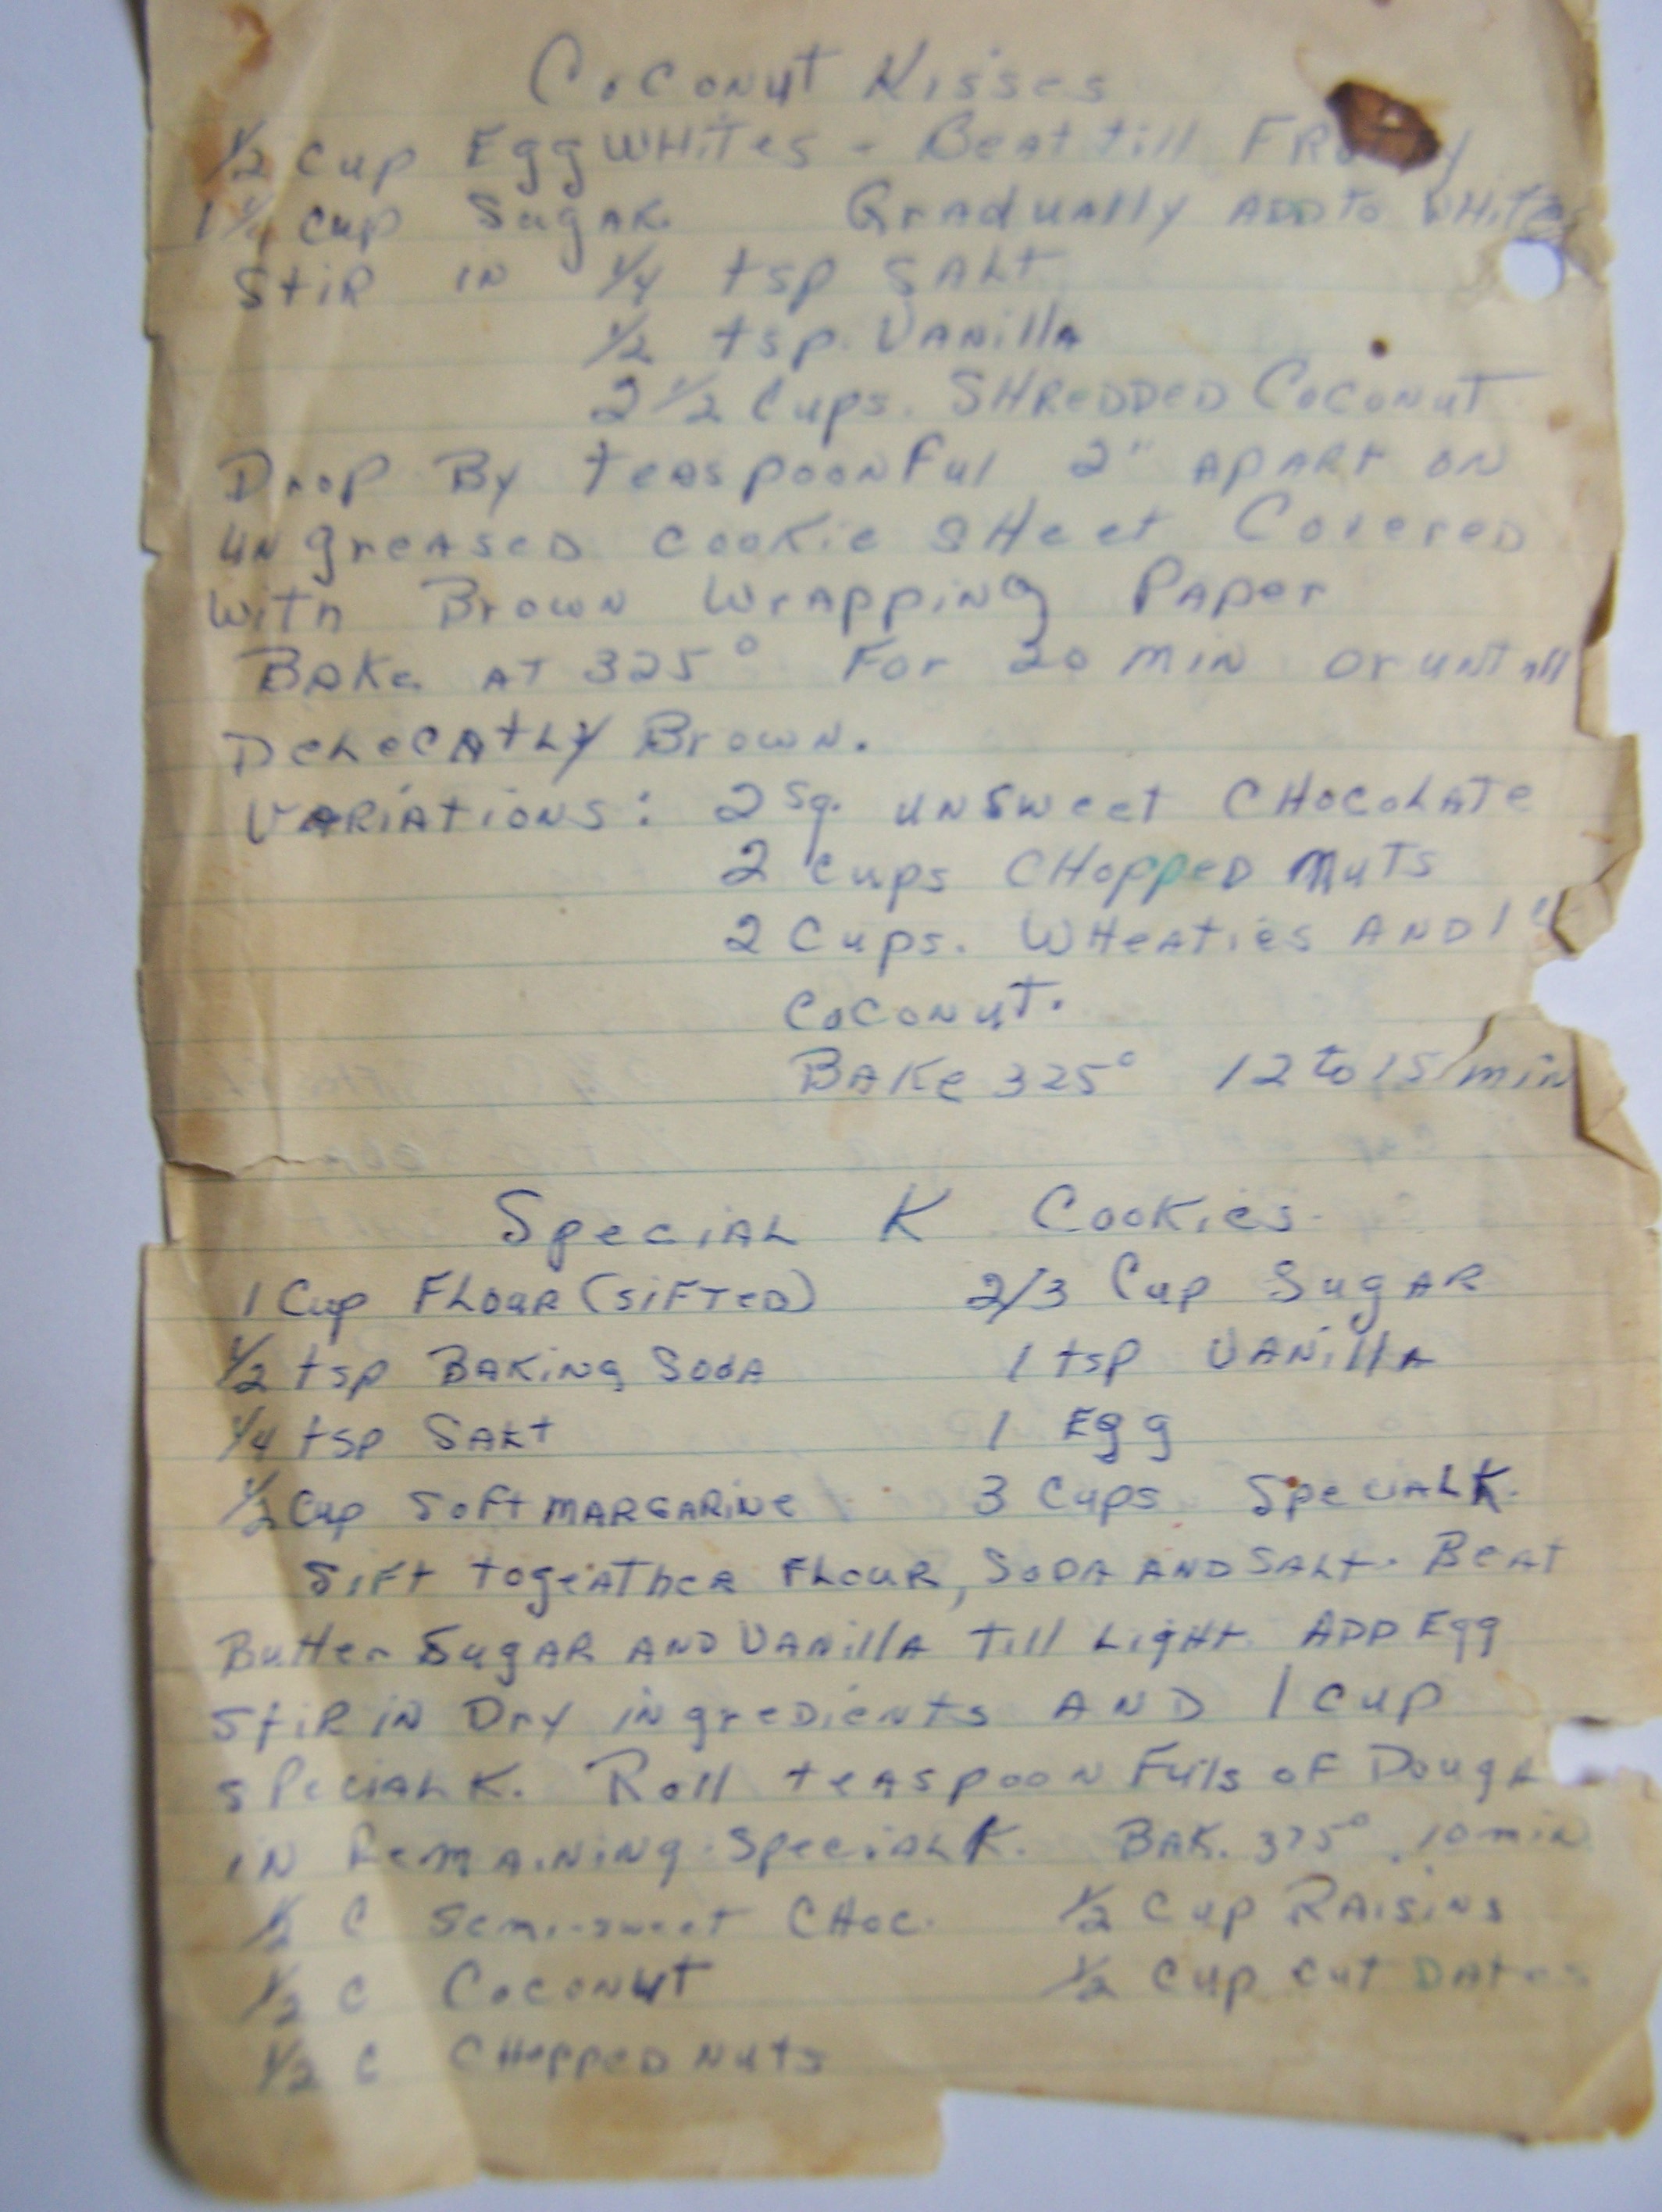 Coconut Kisses
1/2 cup Egg WHiTes - Beat till
1 1/4 cup Sugar. Gradually ADD to WHites
Stir in 1/4 tsp SALt
1/2 tsp. Vanilla
2 1/2 Cups. SHREDDED Coconut
Drop By teaspoonFul 2" apart on
ungreased cookie sHeet Covered
With Brown Wrapping Paper
Bake at 325° For 20 min or untill
DeLecAtLy Brown.
Variations: 2 Sq. unsweet CHocoLate
2 cups CHopped Nuts
2 Cups. WHeaties AND 1
Coconut.
Bake 325° 12 to 15 min
Special K Cookies.
1 Cup FLour (sifted) 2/3 Cup Sugar
1/2 tsp Baking Soda 1 tsp Vanilla
1/4 tsp SALt 1 Egg
1/2 Cup Soft margarine 3 Cups Special K.
Sift togeather FLour, Soda and SALt. Beat
Butter Sugar and Vanilla till Light. ADD Egg
Stir in Dry ingredients AND 1 cup
Special K. Roll teaspoonFuls of Dough
in Remaining Special K. BAK. 375° 10 min
1/2 C Semi-sweet CHoc. 1/2 Cup Raisins
1/2 C Coconut 1/2 Cup cut Dates
1/2 C CHopped Nuts